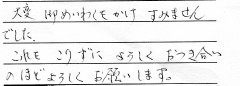 大変 御めいわくをかけ すみません
でした。
これを こりずに よろしく おつき合い
のほどよろしく お願いします。